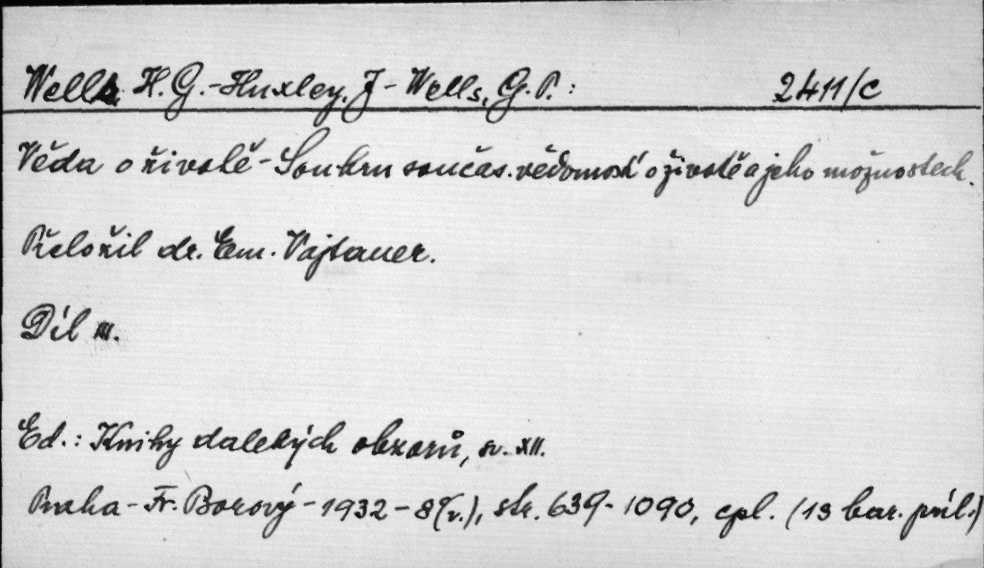 Wells, H. G. - Huxley, J - Wells, G. P. : 2411/c
Věda o životě - Souhrn součas. vědomostí o životě a jeho možnostech.
Přeložil dr. Em. Vajtauer.
Díl III.
Ed.: Knihy dalekých obzorů, sv. XII.
Praha - Fr. Borový - 1932 - 8°(v.), str. 639-1090, cpl. (13 bar. příl.)